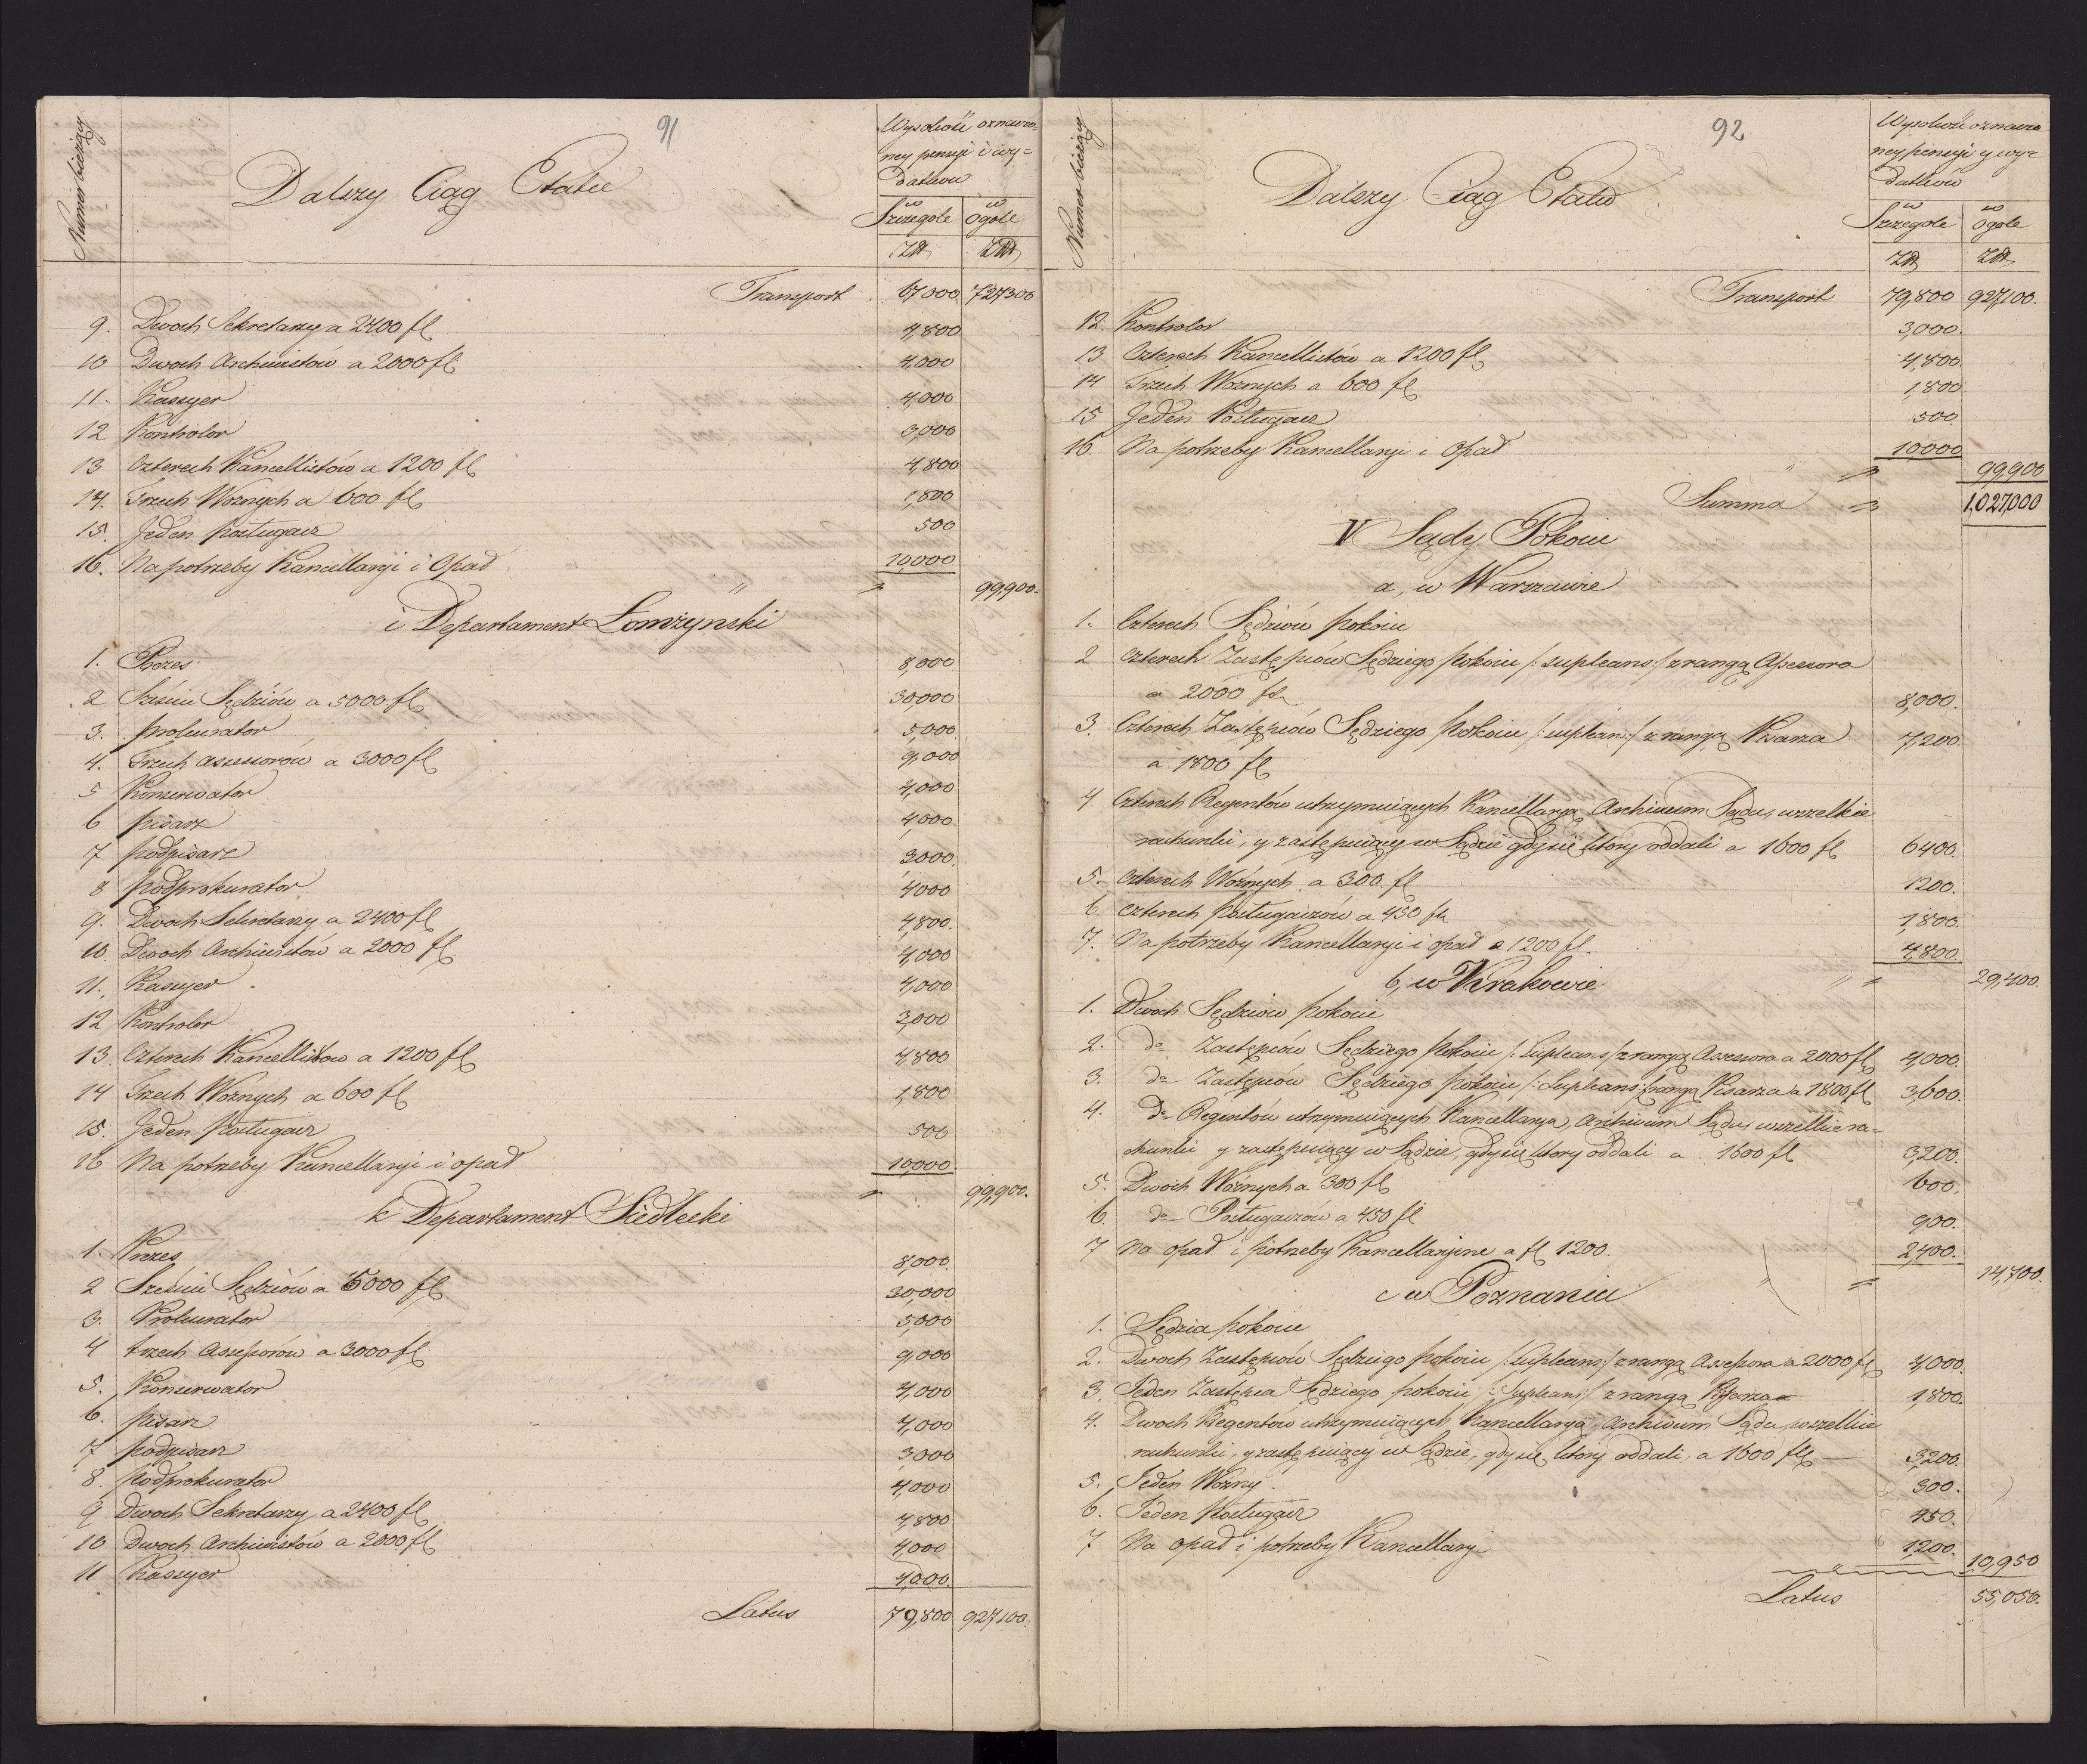 91
Numer bieżący
Dalszy Ciąg Etatu
Wysokość oznaczo-
ney pensyi i wy=
datków
w Szczegole
w Ogole
Złt
Złt
Transport 67000 727,300
9. Dwoch Sekretarzy a 2400 fl 4,800
10 Dwoch Archiwistów a 2000 fl 4,000
11. Kassyer 4,000
12 Kontrolor 3,000
13 Czterech Kancellistów a 1200 fl 4,800
14. Trzech Woznych a 600 fl 1,800
15. Jeden posługacz 500
16. Na potrzeby Kancellaryi i Opał 10000
" = 99,900.
i Departament Łomżyński
1. Prezes 8,000
2 Sześciu Sędziów a 5000 fl 30,000
3. prokurator 5,000
4. Trzech assessorów a 3000 fl 9,000
5 Konserwator 4,000
6 pisarz 4000
7 podpisarz 3000.
8 podprokurator 4000
9. Dwoch Sekretarzy a 2400 fl 4,800.
10. Dwoch Archiwistów a 2000 fl 4,000
11. Kassyer 4,000
12 Kontrolor 3,000
13. Czterech Kancellistow a 1200 fl 4,800
14 Trzech Woźnych a 600 fl 1,800
15. Jeden Posługacz 500
16 Na potrzeby Kancellaryi i opał 10,000.
= 99,900.
k Departament Siedlecki
1. Prezes 8,000.
2 Sześciu Sędziów a 5000 fl 30,000
3. Prokurator 5,000
4 trzech Assessorów a 3000 fl 9,000
5. Konserwator 4,000
6. pisarz 4,000
7 podpisarz 3,000
8. podprokurator 4,000
9 Dwoch Sekretarzy a 2400 fl 4,800
10 Dwoch Archiwistów a 2000 fl 4,000
11 Kassyer 4,000.
Latus 79,800 927,100.
92
Numer bieżący
Dalszy Ciąg Etatu
Wysokość oznaczo
ney pensyi y wy=
datków
w Szczegole
w Ogole
Złt
Złt
Transport 79,800 927,100.
12. Kontrolor 3,000.
13 Czterech Kancellistów a 1200 fl 4,800.
14 Trzech Woznych a 600 fl 1,800
15 Jeden Posługacz 500.
16. Na potrzeby Kancellaryi i Opał 10,000
" = 99,900
Summa = 1,027,000
V Sądy Pokoiu
a, w Warszawie
1. Czterech Sędziów pokoiu
2 Czterech Zastępców Sędziego pokoiu /: supleans :/ z rangą Assessora
a 2000 fl 8,000.
3. Czterech Zastępców Sędziego pokoiu /: supleans :/ z rangą Pisarza 7,200.
a 1800 fl
4 Czterech Regentów utrzymuiących Kancellaryą, Archiwum Sądu, wszelkie
rachunki, y zastępuiący w Sądzie gdy się który oddali a 1600 fl 6400.
5. Czterech Woźnych a 300 fl 1200.
6. Czterech posługaczów a 450 fl 1,800.
7. Na potrzeby Kancellaryi i opał a 1200 fl. 4,800.
b, w Krakowie " = 29,400.
1. Dwoch Sędziow pokoiu
2. do Zastępców Sędziego Pokoiu /: Supleans :/ z rangą Assessora a 2000 fl 4,000.
3. do Zastępców Sędziego pokoiu /: Supleans :/ z rangą Pisarza a 1800 fl 3,600.
4. do Regentów utrzymuiących Kancellaryą, Archiwum Sądu, wszelkie ra-
chunki y zastępuiący w Sądzie, gdy się który oddali a 1600 fl 3,200.
5. Dwoch Woznych a 300 fl 600.
6. do Posługaczów a 450 fl 900.
7 Na opał i potrzeby Kancellaryine a fl 1200. 2,400.
" = 14,700.
c w Poznaniu
1. Sędzia pokoiu
2. Dwoch Zastępców Sędziego pokoiu /: Supleans :/ z rangą Assessora a 2000 fl 4,000.
3. Jeden Zastępca Sędziego pokoiu /: Supleans :/ z rangą Pisarza 1,800.
4. Dwoch Regentow utrzymuiących Kancellaryą, Archiwum Sądu, wszelkie
rachunki, y zastępuiący w Sądzie, gdy się który oddali, a 1600 fl — 3,200.
5. Jeden Wozny. 300.
6. Jeden Posługacz 450.
7 Na opał i potrzeby Kancellaryi 1,200.
" 10,950
Latus 55,050.